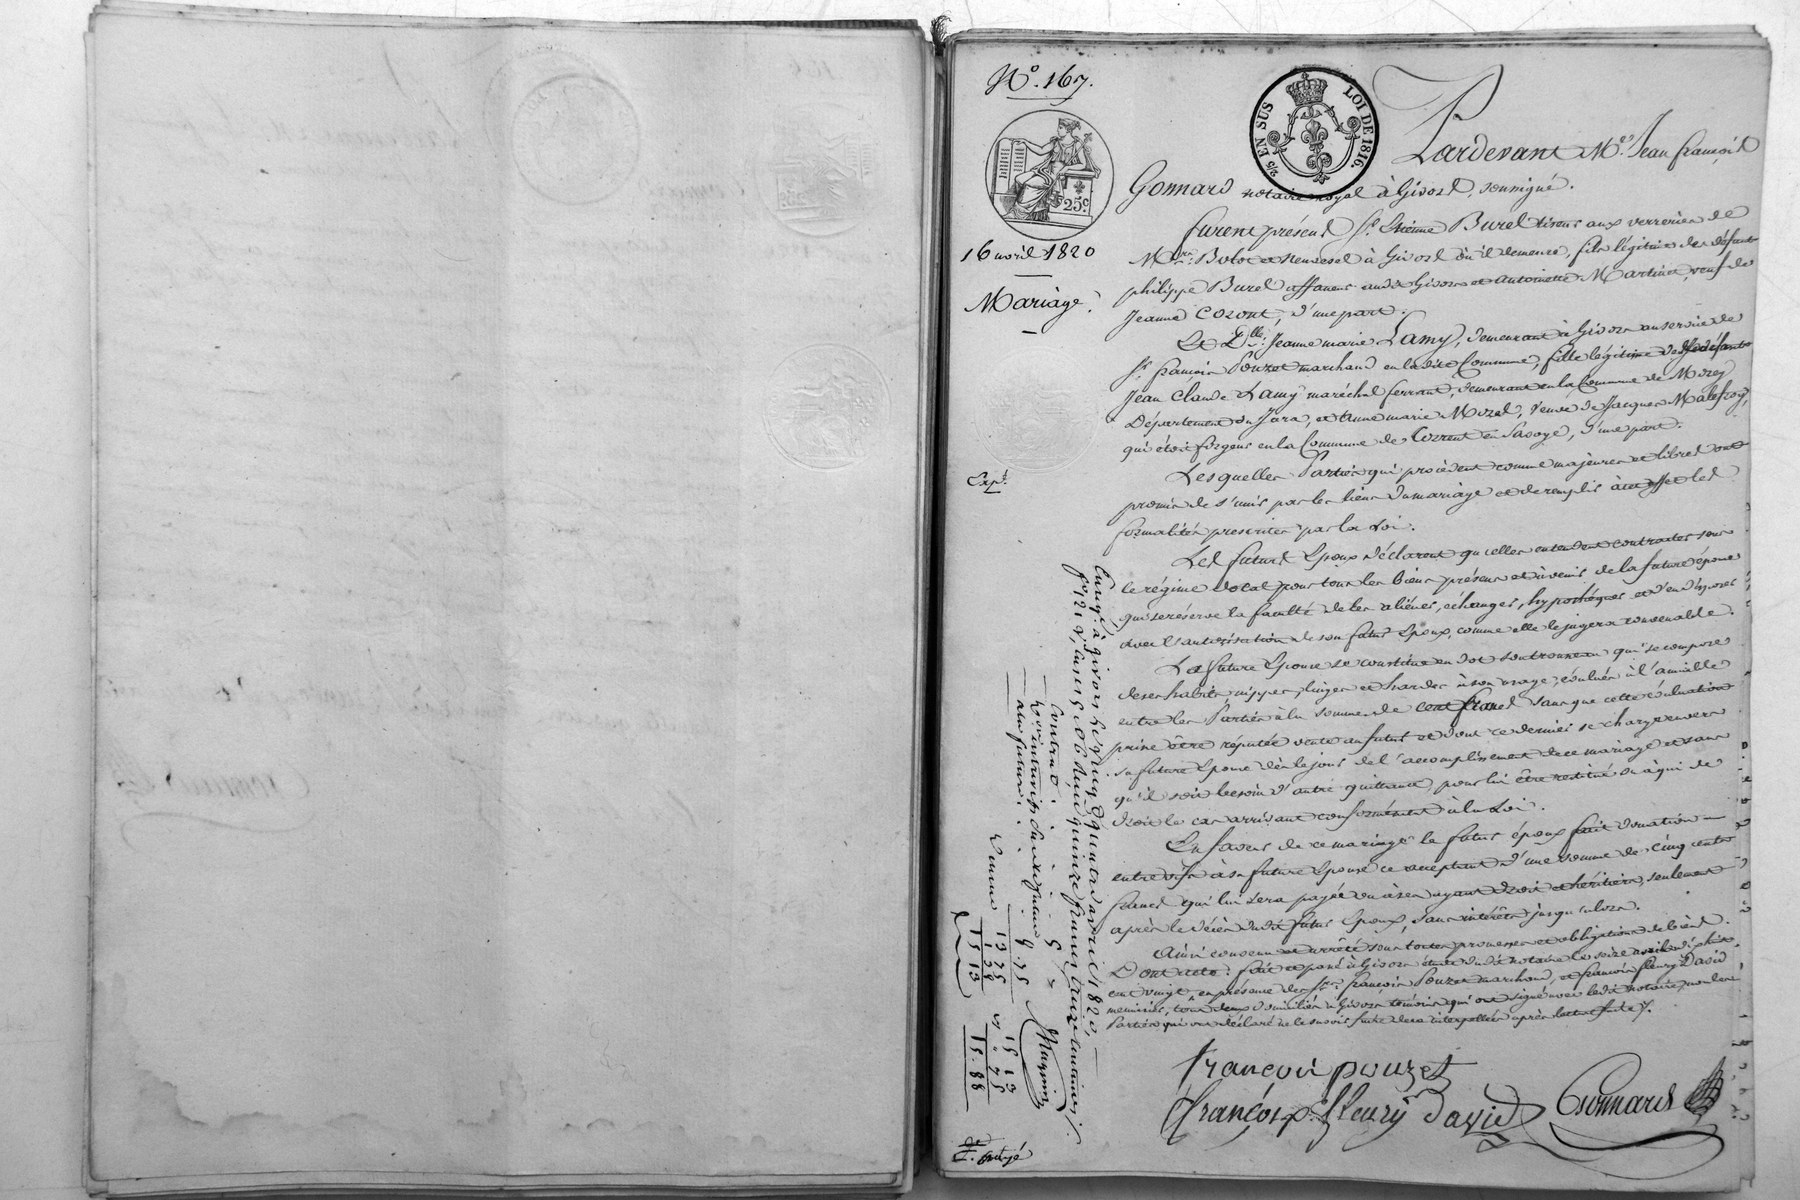 N.º 167.
2/5 EN SUS
LOI DE 1816.
25 c
16 avril 1820
Mariage.
Exp.t
Pardevant M.e Jean françois
Gonnard notaire royal à Givors, soussigné.
furent présens S.r Etienne Burel tiseur aux verreries de
M.rs Bolot et Neuvesel à Givors où il demeure, fils légitime des défunts
philippe Burel affaneur audit Givors et Antoinette Martinet, veuf de
Jeanne Cozont, d'une part.
Et D.lle Jeanne marie Lamy, demeurant à Givors au service de
S.r françois Pouzet marchand en ladite Commune, fille légitime de
Jean Claude Lamy maréchal ferrant, demeurant en la Commune de Morey
Département du Jura, et Anne marie Morel, veuve de Jacques Malefroy,
qui étoit forgeur en la Commune de en Savoye, d'une part.
Lesquelles Parties qui procèdent comme majeures et libres ont
promis de s'unir par les liens du mariage et de remplir à cet effet les
formalités prescrites par la Loi.
Les futurs Epoux déclarent qu'elles entendent contracter sous
le régime dotal pour tous les biens présens et à venir de la future épouse
qui se réserve la faculté de les aliéner, échanger, hypothéquer et d'en disposer
avec l'autorisation de son futur Epoux, comme elle le jugera convenable.
La future Epouse se constitue en dot son trousseau qui se compose
de ses habits, nippes, linges et hardes à son usage, évalués à l'amiable
entre les Parties à la somme de cent francs sans que cette évaluation
puisse être réputée vente au futur et dont ce dernier se chargera envers
sa future Epouse dès le jour de l'accomplissement de ce mariage et sans
qu'il soit besoin d'autre quittance, pour lui être restitué ou à qui de
droit le cas arrivant conformément à la Loi.
En faveur de ce mariage le futur époux fait donation
entre vifs à sa future Epouse ce acceptant d'une somme de cinq cents
francs qui lui sera payée ou à ses ayant droit et héritiers, seulement
après le décès dudit futur Epoux, sans intérêts jusqu'alors.
Ainsi convenu et arrêté sous toutes promesses et obligations de biens.
Dont acte: fait et passé à Givors étude dudit notaire le seize avril dix huit
cent vingt en présence des S.rs françois Pouzet marchand, et françois fleury David
menuisier, tous deux domiciliés à Givors témoins qui ont signé avec ledit notaire, non les
Parties qui ont déclaré ne le savoir faire de ce interpellées après lecture faite.
françois pouzet
françois fleury david
Gonnard
Enreg.é à givors le vingt quatre avril 1820,
f.o 121 v.o, cases 5 et 6 Reçu quinze francs treize centimes
Contrat . . . 5 "
au futur . . . 8.75
13 75
1 38
15 13
15 13
" 75
15.88